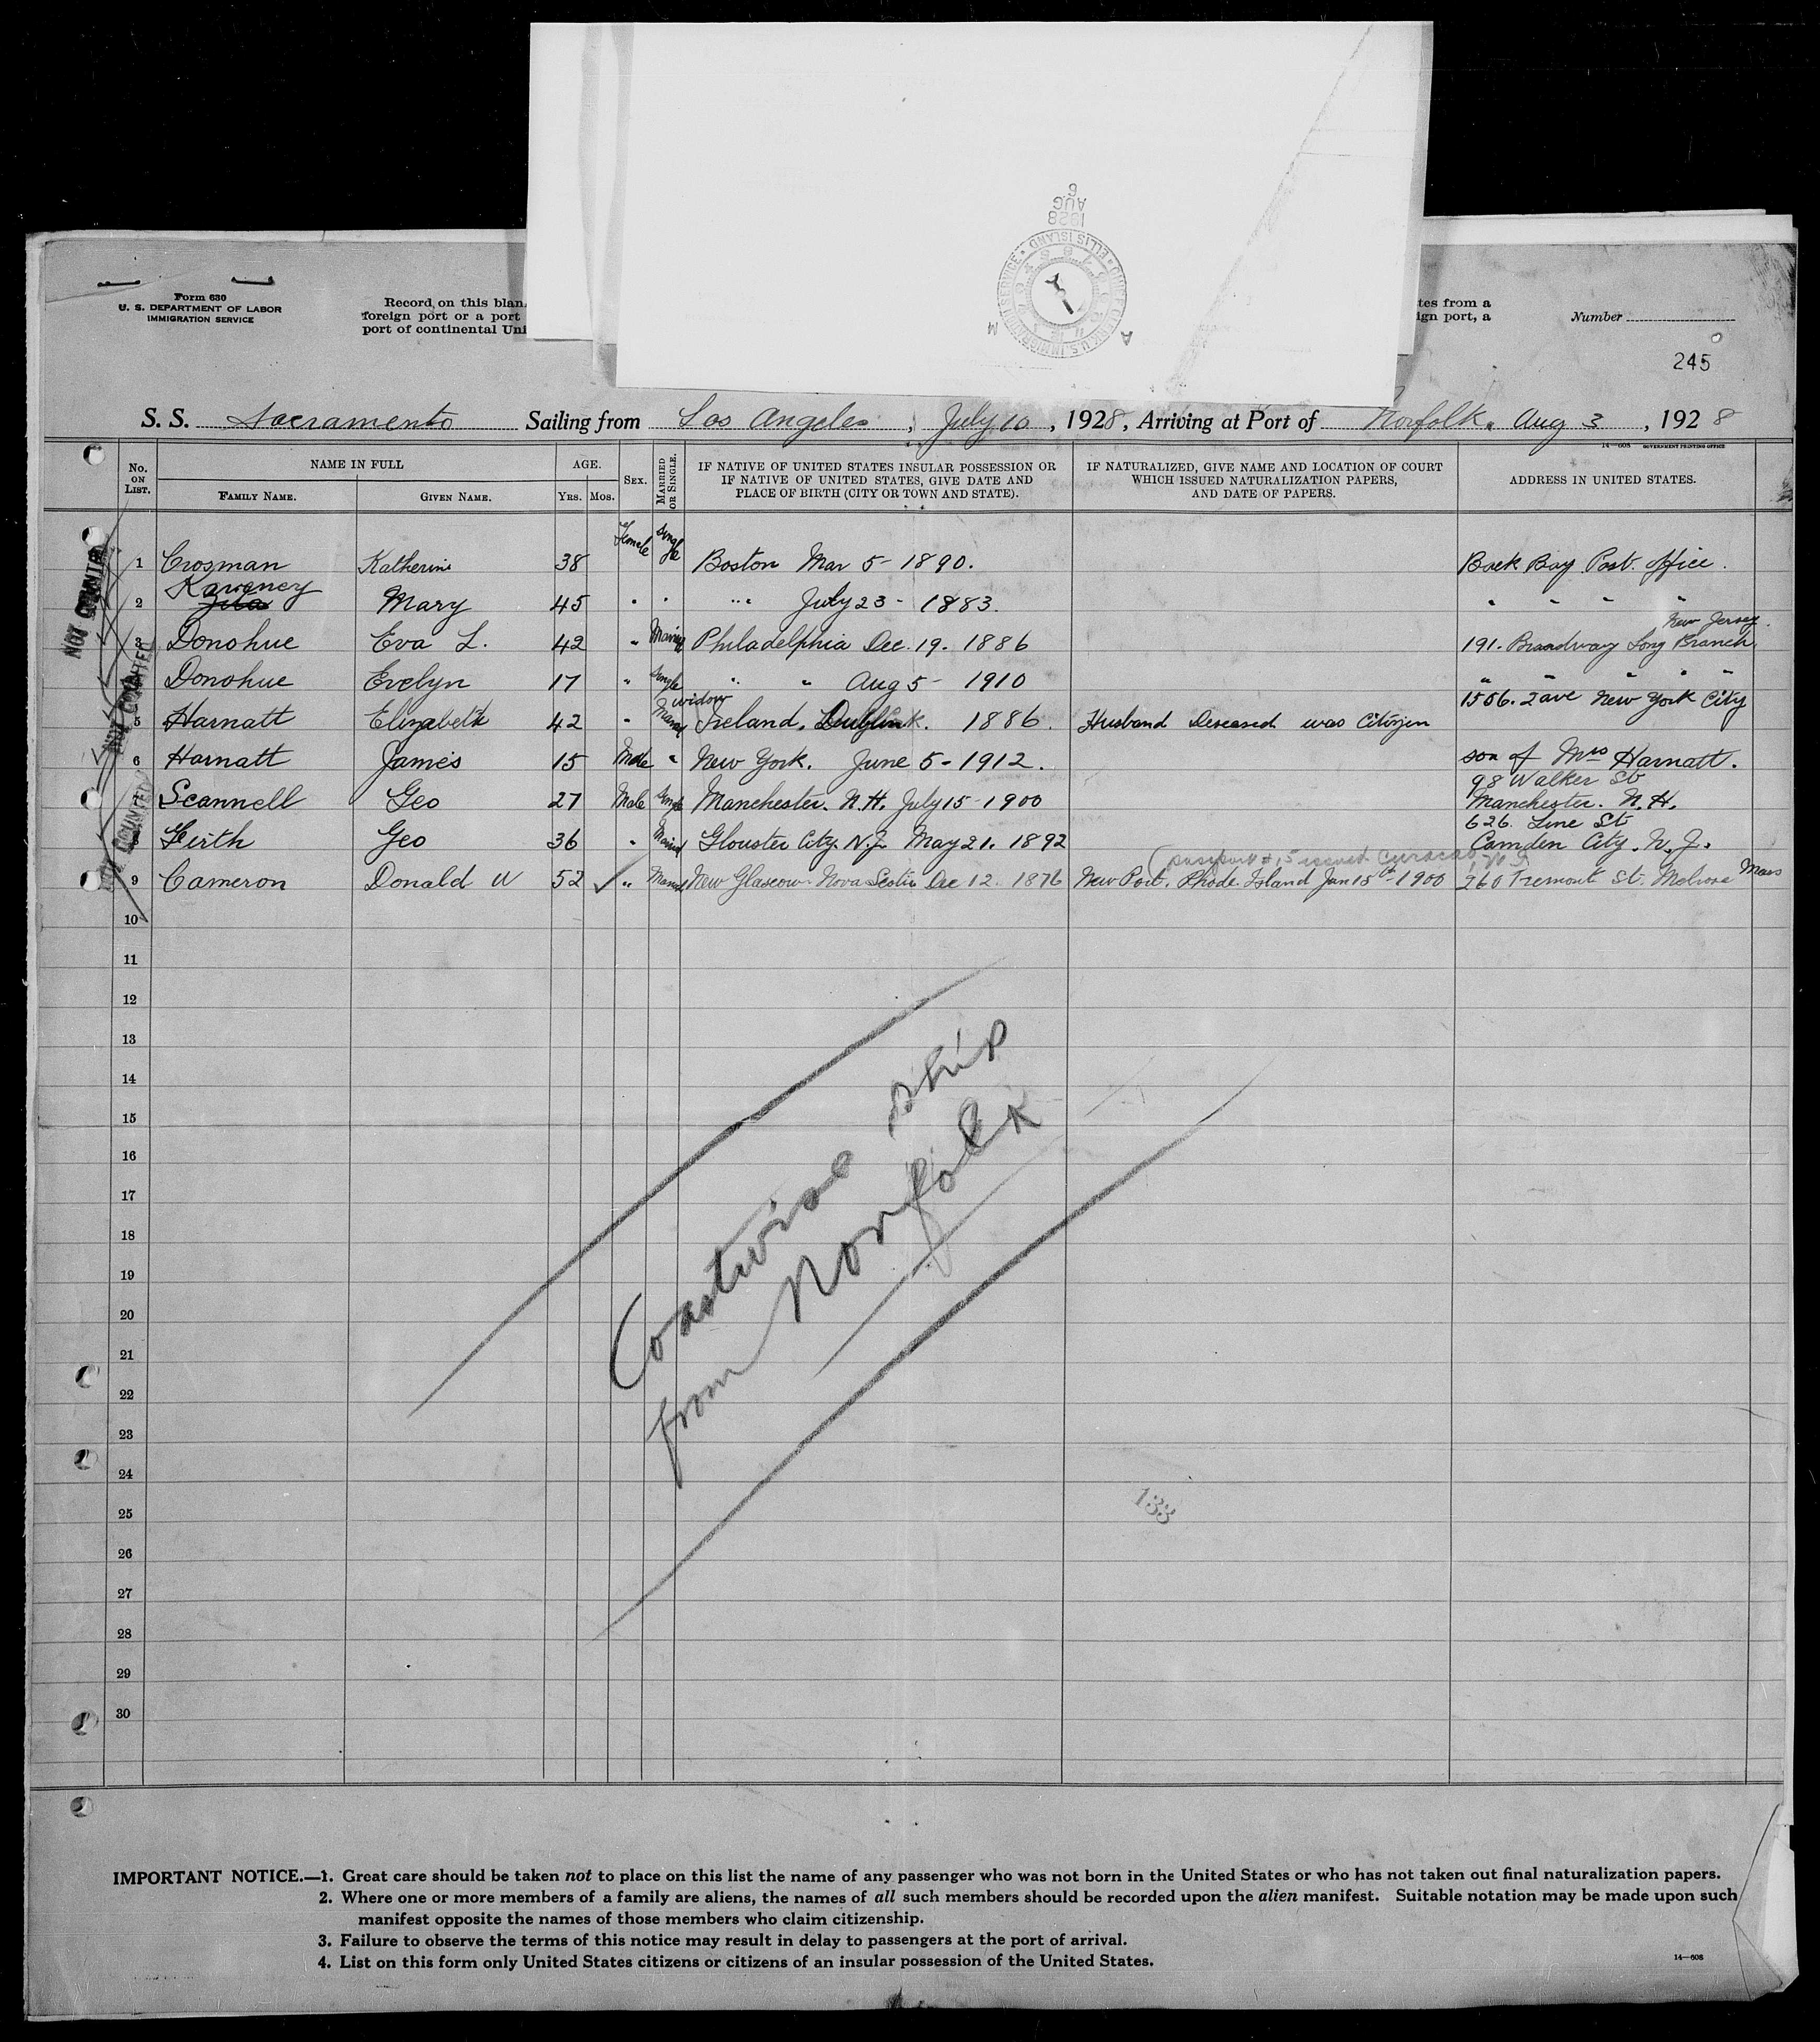 6
AUG
1928
ELLIS ISLAND
Form 630
U. S. DEPARTMENT OF LABOR
IMMIGRATION SERVICE
Record on this blan
foreign port or a port
port of continental Uni
tes from a
ign port, a
Number
245
S. S. Sacramento Sailing from Los Angeles, July 10, 1928, Arriving at Port of Norfolk. Aug 3, 1928
14—608 GOVERNMENT PRINTING OFFICE
No. ON LIST. NAME IN FULL FAMILY NAME. GIVEN NAME. AGE. YRS. MOS. SEX. MARRIED OR SINGLE. IF NATIVE OF UNITED STATES INSULAR POSSESSION OR IF NATIVE OF UNITED STATES, GIVE DATE AND PLACE OF BIRTH (CITY OR TOWN AND STATE). IF NATURALIZED, GIVE NAME AND LOCATION OF COURT WHICH ISSUED NATURALIZATION PAPERS, AND DATE OF PAPERS. ADDRESS IN UNITED STATES.
NOT COUNTED
NOT COUNTED
NOT COUNTED
1 Crosman Katherine 38 Female Single Boston Mar 5 - 1890. Back Bay Post. office.
2 Mary 45 " " " July 23 - 1883. " " " "
New Jersey.
3 Donohue Eva L. 42 " Married Philadelphia Dec. 19. 1886 191. Broadway Long Branch.
Donohue Evelyn 17 " Single " " Aug 5 - 1910 " " " "
widow
5 Harnatt Elizabeth 42 " Married Ireland, Dublin. 1886. Husband Deseased was Citizen 1506. 2 ave New York City
6 Harnatt James 15 Male " New York. June 5 - 1912. son of Mrs Harnatt.
98 Walker St
7 Scannell Geo 27 Male Single Manchester. N. H. July 15 - 1900 Manchester. N. H.
626. Line St
8 Firth Geo 36 " Married Glouster City. N. J. May 21. 1892 Camden City. N. J.
issued Curacao
9 Cameron Donald W 52 ✓ " Married New Glascow. Nova Scotia Dec 12. 1876 New Port. Rhode Island Jan 15th - 1900 260 Tremont St. Melrose Mass
10
11
12
13
14
15
16
17
18
19
20
21
22
23
24
25
26
27
28
29
30
Coastwise ship
from Norfolk
133
IMPORTANT NOTICE.—1. Great care should be taken not to place on this list the name of any passenger who was not born in the United States or who has not taken out final naturalization papers.
2. Where one or more members of a family are aliens, the names of all such members should be recorded upon the alien manifest. Suitable notation may be made upon such
manifest opposite the names of those members who claim citizenship.
3. Failure to observe the terms of this notice may result in delay to passengers at the port of arrival.
4. List on this form only United States citizens or citizens of an insular possession of the United States.
14—608